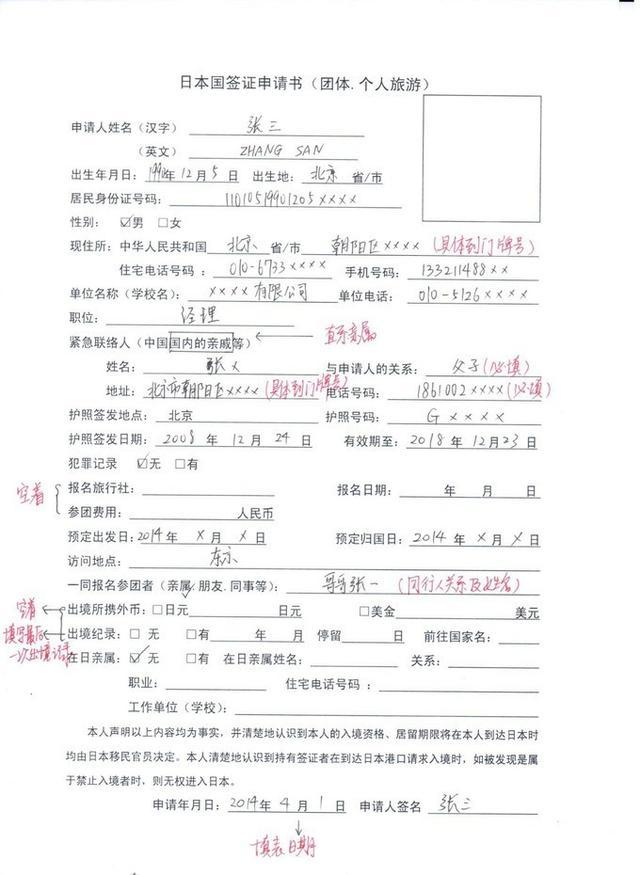 日本国签证申请书（团体.个人旅游）
申请人姓名（汉字） 张三
（英文） ZHANG SAN
出生年月日：1990年12月5日 出生地：北京 省/市
居民身份证号码：11010519901205××××
性别：☑男 □女
现住所：中华人民共和国 北京 省/市 朝阳区××××（具体到门牌号）
住宅电话号码：010-6733×××× 手机号码：133211488××
单位名称（学校名）：××××有限公司 单位电话：010-5126××××
职位：经理
紧急联络人（中国国内的亲戚等） ← 直系亲属
姓名：张× 与申请人的关系：父子（必填）
地址：北京市朝阳区××××（具体到门牌号） 电话号码：1861002××××（必填）
护照签发地点：北京 护照号码：G××××
护照签发日期：2008年12月24日 有效期至：2018年12月23日
犯罪记录 ☑无 □有
空着
报名旅行社： 报名日期： 年 月 日
参团费用： 人民币
预定出发日：2014年×月×日 预定归国日：2014年×月×日
访问地点：东京
一同报名参团者（亲属✓.朋友.同事等）：哥哥张一（同行人关系及姓名）
空着 出境所携外币：□日元 日元 □美金 美元
填写最后一次出境记录 出境纪录：□无 □有 年 月 停留 日 前往国家名：
在日亲属：☑无 □有 在日亲属姓名： 关系：
职业： 住宅电话号码：
工作单位（学校）：
本人声明以上内容均为事实，并清楚地认识到本人的入境资格、居留期限将在本人到达日本时
均由日本移民官员决定。本人清楚地认识到持有签证者在到达日本港口请求入境时，如被发现是属
于禁止入境者时，则无权进入日本。
申请年月日：2014年4月1日 申请人签名 张三
填表日期